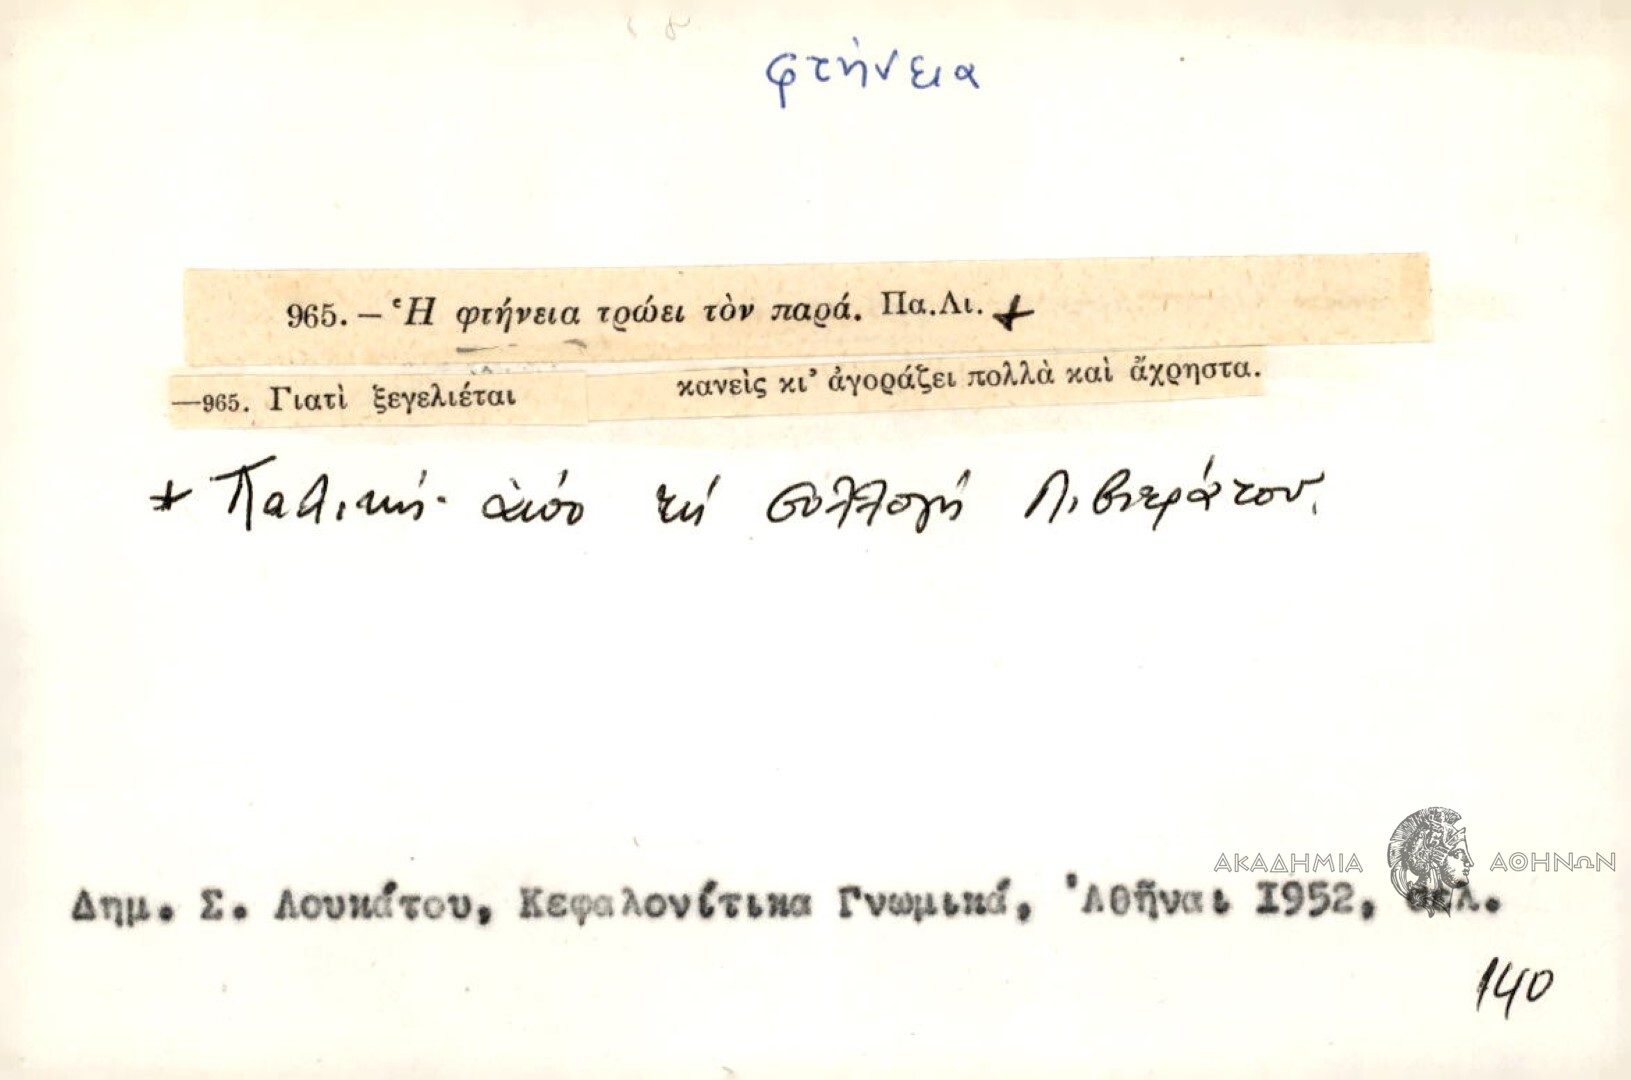 φτήνεια
965. – Ἡ φτήνεια τρώει τὸν παρά. Πα.Λι. +
—965. Γιατὶ ξεγελιέται κανεὶς κι' ἀγοράζει πολλὰ καὶ ἄχρηστα.
+ Παλική· ἀπό τή συλλογή Λιβιεράτου.
ΑΚΑΔΗΜΙΑ ΑΘΗΝΩΝ
Δημ. Σ. Λουκάτου, Κεφαλονίτικα Γνωμικά, Ἀθῆναι 1952, σελ.
140